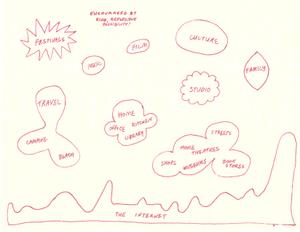 ENCOURAGED BY
FESTIVALS
FILM
CULTURE
MUSIC
FAMILY
STUDIO
TRAVEL
CAMPING
BEACH
HOME
OFFICE
KITCHEN
LIBRARY
STREETS
MOVIE
THEATRES
SHOPS
MUSEUMS
BOOK
STORES
THE INTERNET